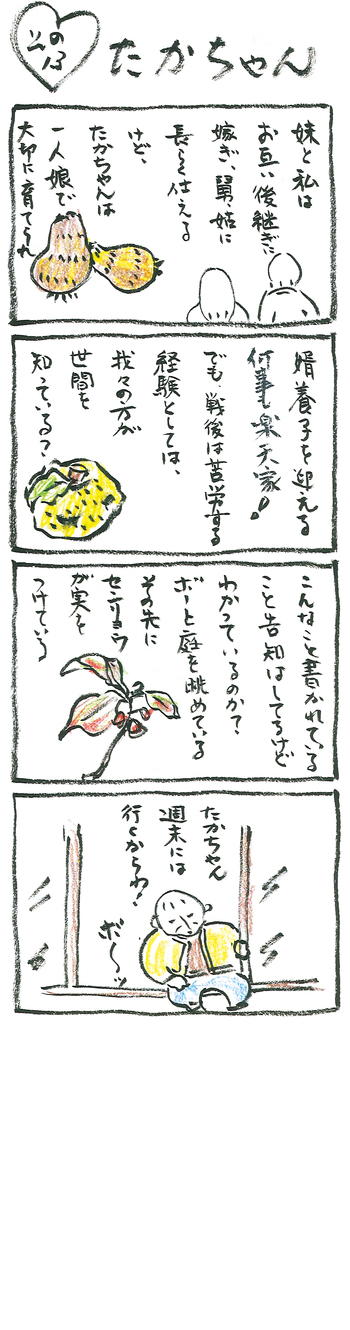 その13
たかちゃん
妹と私は
お互い後継ぎに
嫁ぎ、舅、姑に
長らく仕える
けど、
たかちゃんは
一人娘で
大切に育てられ
婿養子を迎える
何事も楽天家!
でも、戦後は苦労する
経験としては、
我々の方が
世間を
知っている?
こんなこと書かれている
こと告知はしてるけど
わかっているのか?
ボーと庭を眺めている
その先に
センリョウ
が実を
つけている
たかちゃん
週末には
行くからね!
ボ〜〜ッ